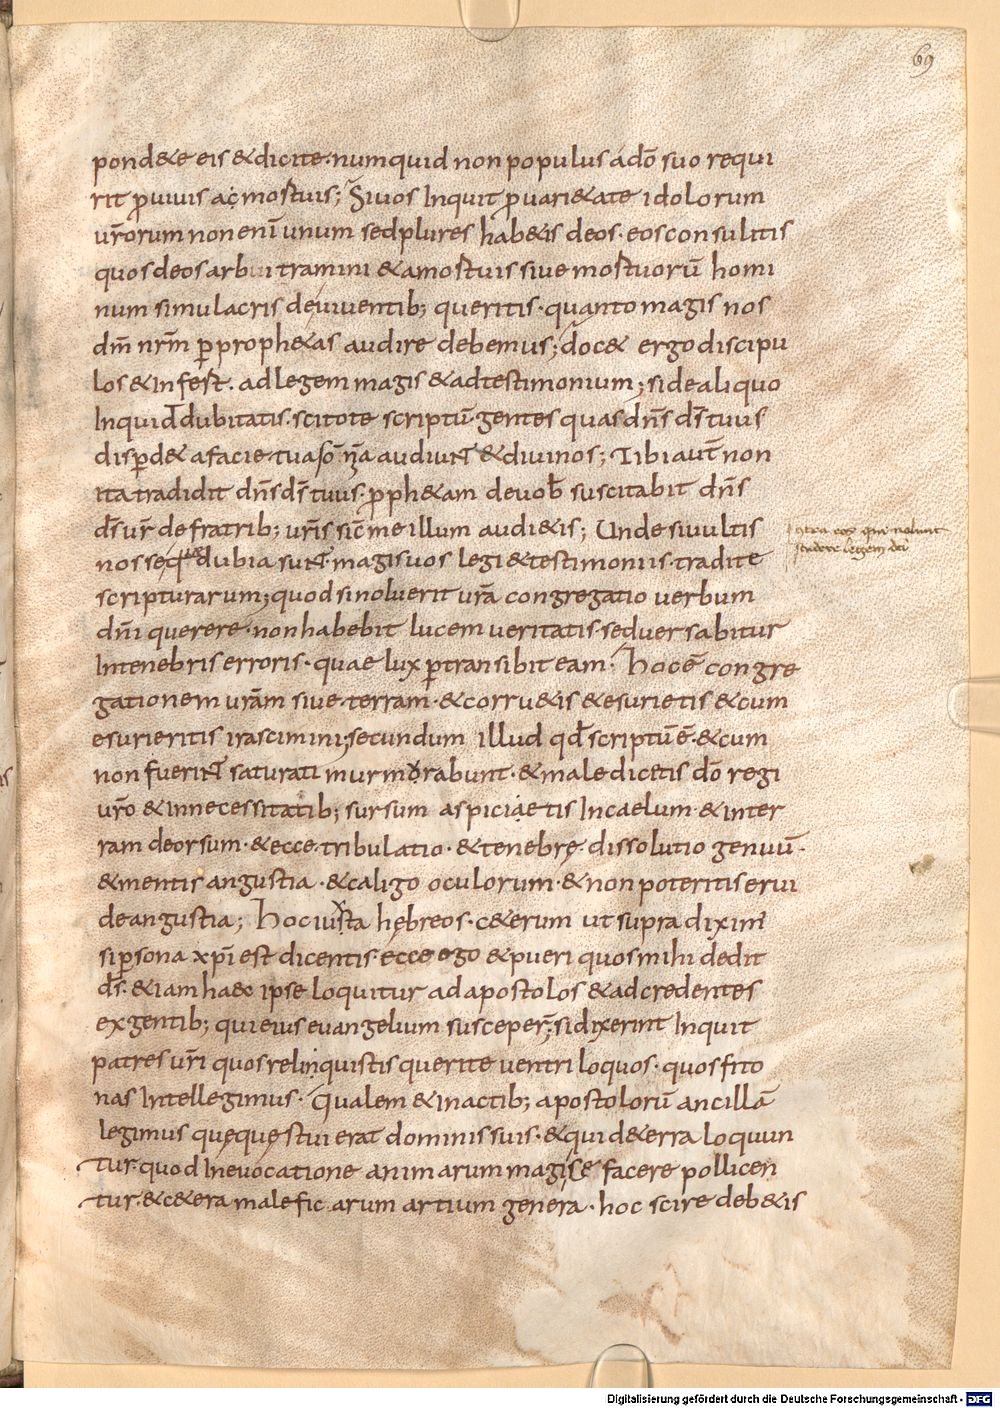 69
pond&e eis & dicite · numquid non populus a dõ suo requi
rit p viuis ac mortuis; Si uos Inquit p uari&ate idolorum
ur̄orum non enī unum sed plures hab&is deos · eos consulitis
quos deos arbuitramini & a mortuis siue mortuorū homi
num simulacris de uiuentib; queritis · quanto magis nos
dm̄ nr̄m p proph&as audire debemus; doc& ergo discipu
los & Infert · ad legem magis & ad testimonium; si de aliquo
Inquid dubitatis · scitote scriptū · gentes quas dn̄s ds̄ tuus
disperd& a facie tua sō nia audiunt & diuinos; Tibi aut̄ non
ita tradidit dn̄s ds̄ tuus · p ph&am de uob̄ suscitabit dn̄s
ds̄ ur̄ de fratrib; ur̄is sic̄ me illum audi&is; Unde si uultis
Intra eos qui nolunt
studere legem dei
nosse quae dubia sunt · magis uos legi & testimoniis tradite
scripturarum; quod si noluerit ur̄a congregatio uerbum
dn̄i querere · non habebit lucem ueritatis · sed uersabitur
In tenebris erroris · quae lux ptransibit eam · Hoc ē congre
gationem ur̄am siue terram · & corru&is & esurietis & cum
esurieritis irascimini; secundum illud qd̄ scriptū ē · & cum
non fuerint saturati murmorabunt · & maledic&is dō regi
ur̄o & in necessitatib; sursum aspiciaetis In caelum & in ter
ram deorsum · & ecce tribulatio · & tenebrę dissolutio genuū ·
& mentis angustia · & caligo oculorum · & non poteritis erui
de angustia; Hoc iuxta hębreos · c&erum ut supra diximus
si psona xp̄i est dicentis · ecce ego & pueri quos mihi dedit
ds̄ · & iam haec ipse loquitur ad apostolos & ad credentes
ex gentib; qui eius euangelium susceper; si dixerint Inquit
patres ur̄i quos relinquistis querite uentriloquos · quos fito
nas Intellegimus · Qualem & in actib; apostolorū ancillā
legimus quę questui erat dominis suis · & qui de terra loquun
tur · quod In euocatione animarum magi se facere pollicen
tur · & c&era maleficarum artium genera · hoc scire deb&is
Digitalisierung gefördert durch die Deutsche Forschungsgemeinschaft - DFG